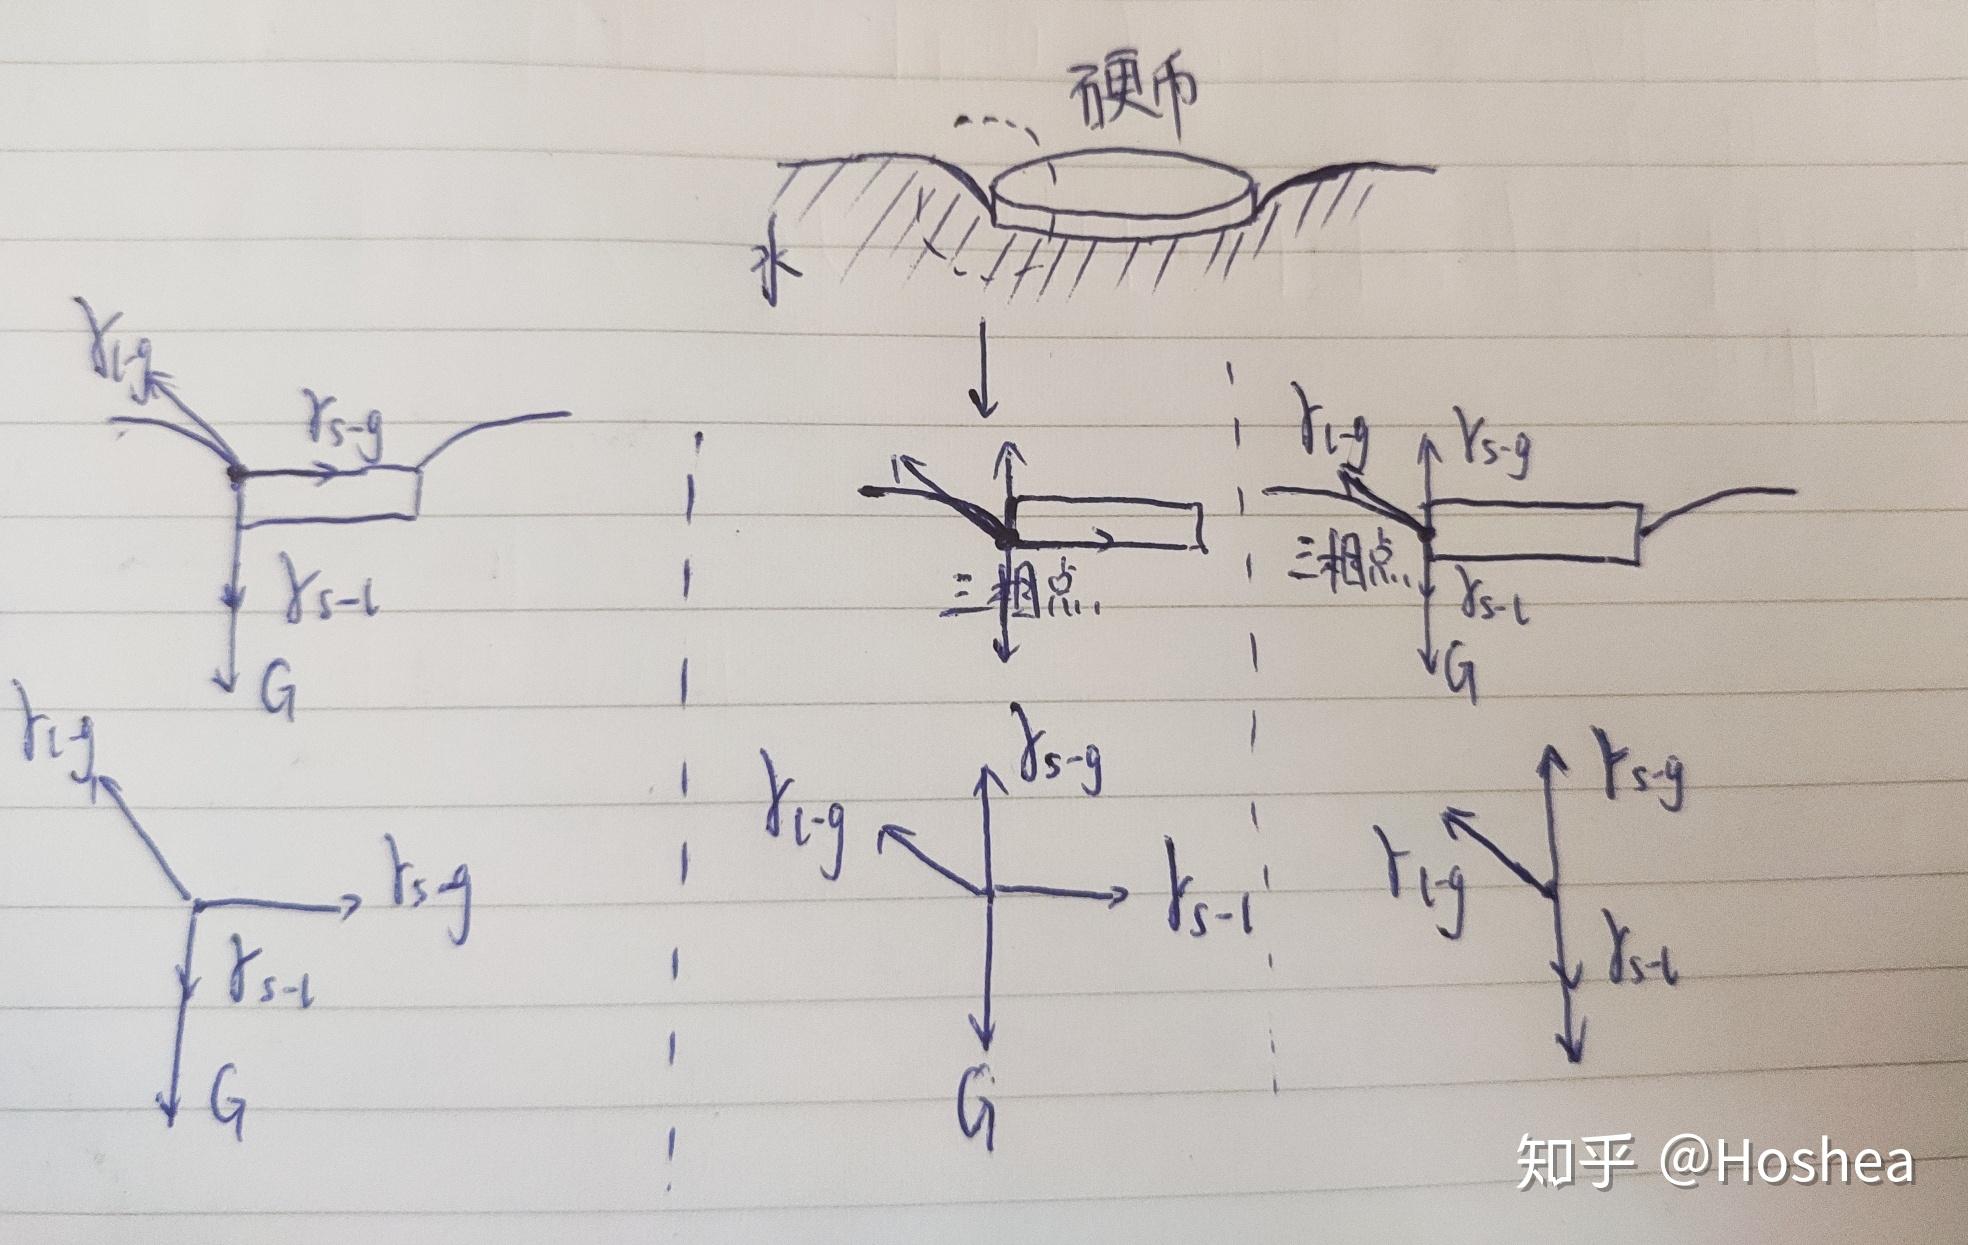 硬币
水
γl-g
γs-g
γs-l
G
三相点
γl-g
γs-g
三相点
γs-l
G
γl-g
γs-g
γs-l
G
γs-g
γl-g
γs-l
G
γs-g
γl-g
γs-l
知乎 @Hoshea